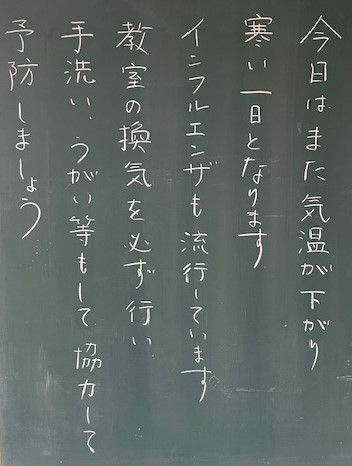 今日はまた気温が下がり
寒い一日となります
インフルエンザも流行しています
教室の換気を必ず行い
手洗い、うがい等もして協力して
予防しましょう